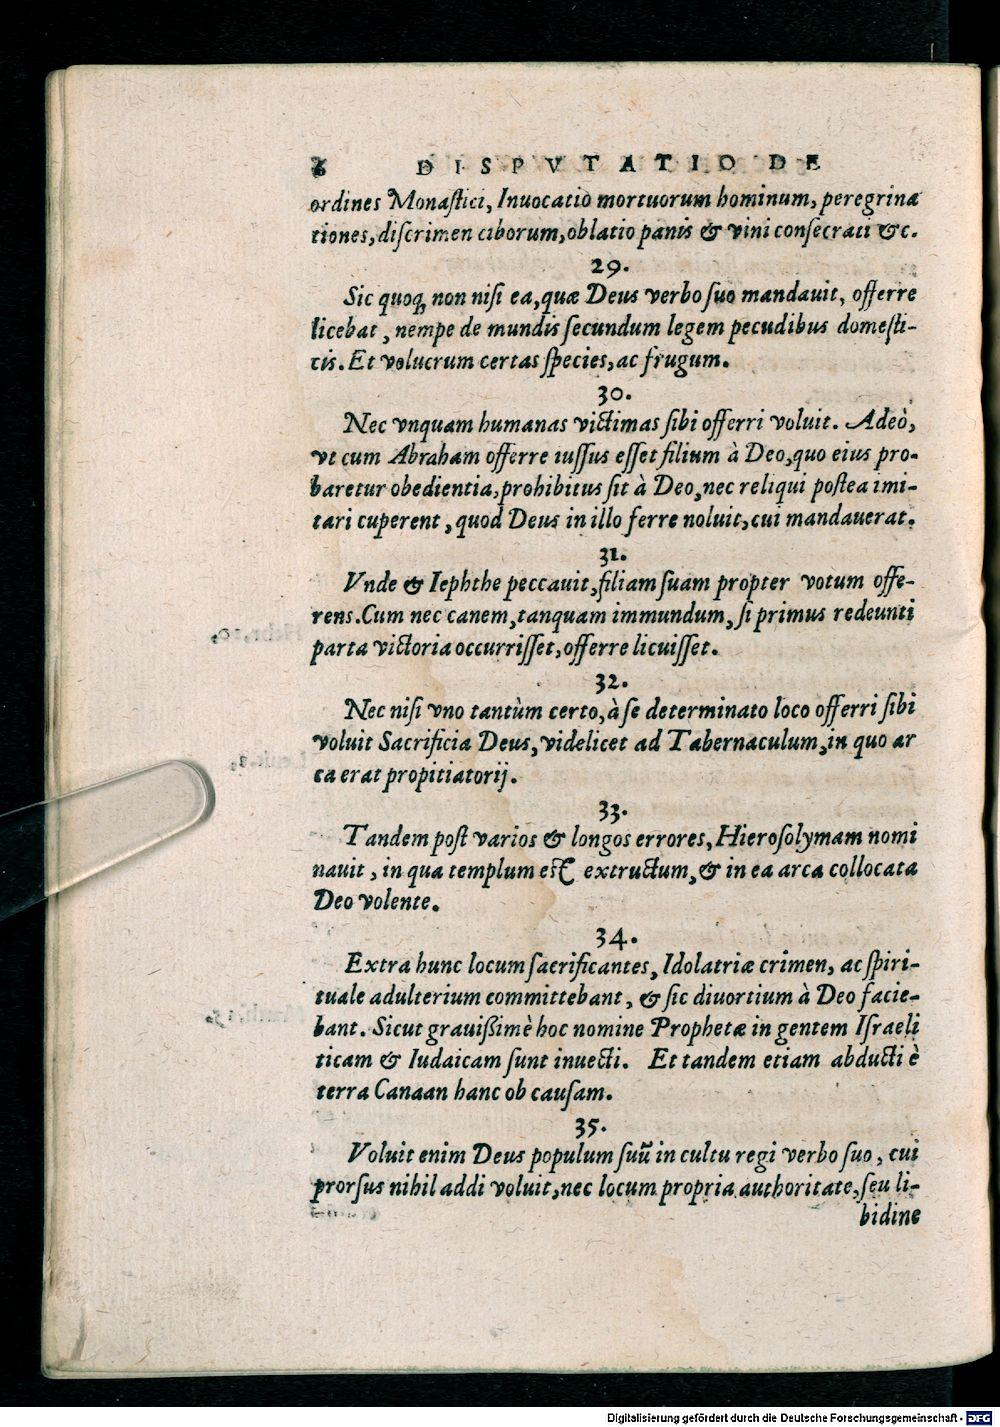 6 DISPVTATIO DE
ordines Monaſtici, Inuocatio mortuorum hominum, peregrina
tiones, diſcrimen ciborum, oblatio panis & vini conſecrati &c.
29.
Sic quoq; non niſi ea, quæ Deus verbo ſuo mandauit, offerre
licebat, nempe de mundis ſecundum legem pecudibus domeſti-
cis. Et volucrum certas ſpecies, ac frugum.
30.
Nec vnquam humanas victimas ſibi offerri voluit. Adeò,
vt cum Abraham offerre iuſſus eſſet filium à Deo, quo eius pro-
baretur obedientia, prohibitus ſit à Deo, nec reliqui poſtea imi-
tari cuperent, quod Deus in illo ferre noluit, cui mandauerat.
31.
Vnde & Iephthe peccauit, filiam ſuam propter votum offe-
rens. Cum nec canem, tanquam immundum, ſi primus redeunti
parta victoria occurriſſet, offerre licuiſſet.
32.
Nec niſi vno tantùm certo, à ſe determinato loco offerri ſibi
voluit Sacrificia Deus, videlicet ad Tabernaculum, in quo ar
ca erat propitiatorij.
33.
Tandem poſt varios & longos errores, Hieroſolymam nomi
nauit, in qua templum eſt extructum, & in ea arca collocata
Deo volente.
34.
Extra hunc locum ſacrificantes, Idolatriæ crimen, ac ſpiri-
tuale adulterium committebant, & ſic diuortium à Deo facie-
bant. Sicut grauißimè hoc nomine Prophetæ in gentem Iſraeli
ticam & Iudaicam ſunt inuecti. Et tandem etiam abducti è
terra Canaan hanc ob cauſam.
35.
Voluit enim Deus populum ſuũ in cultu regi verbo ſuo, cui
prorſus nihil addi voluit, nec locum propria authoritate, ſeu li-
bidine
Digitalisierung gefördert durch die Deutsche Forschungsgemeinschaft - DFG